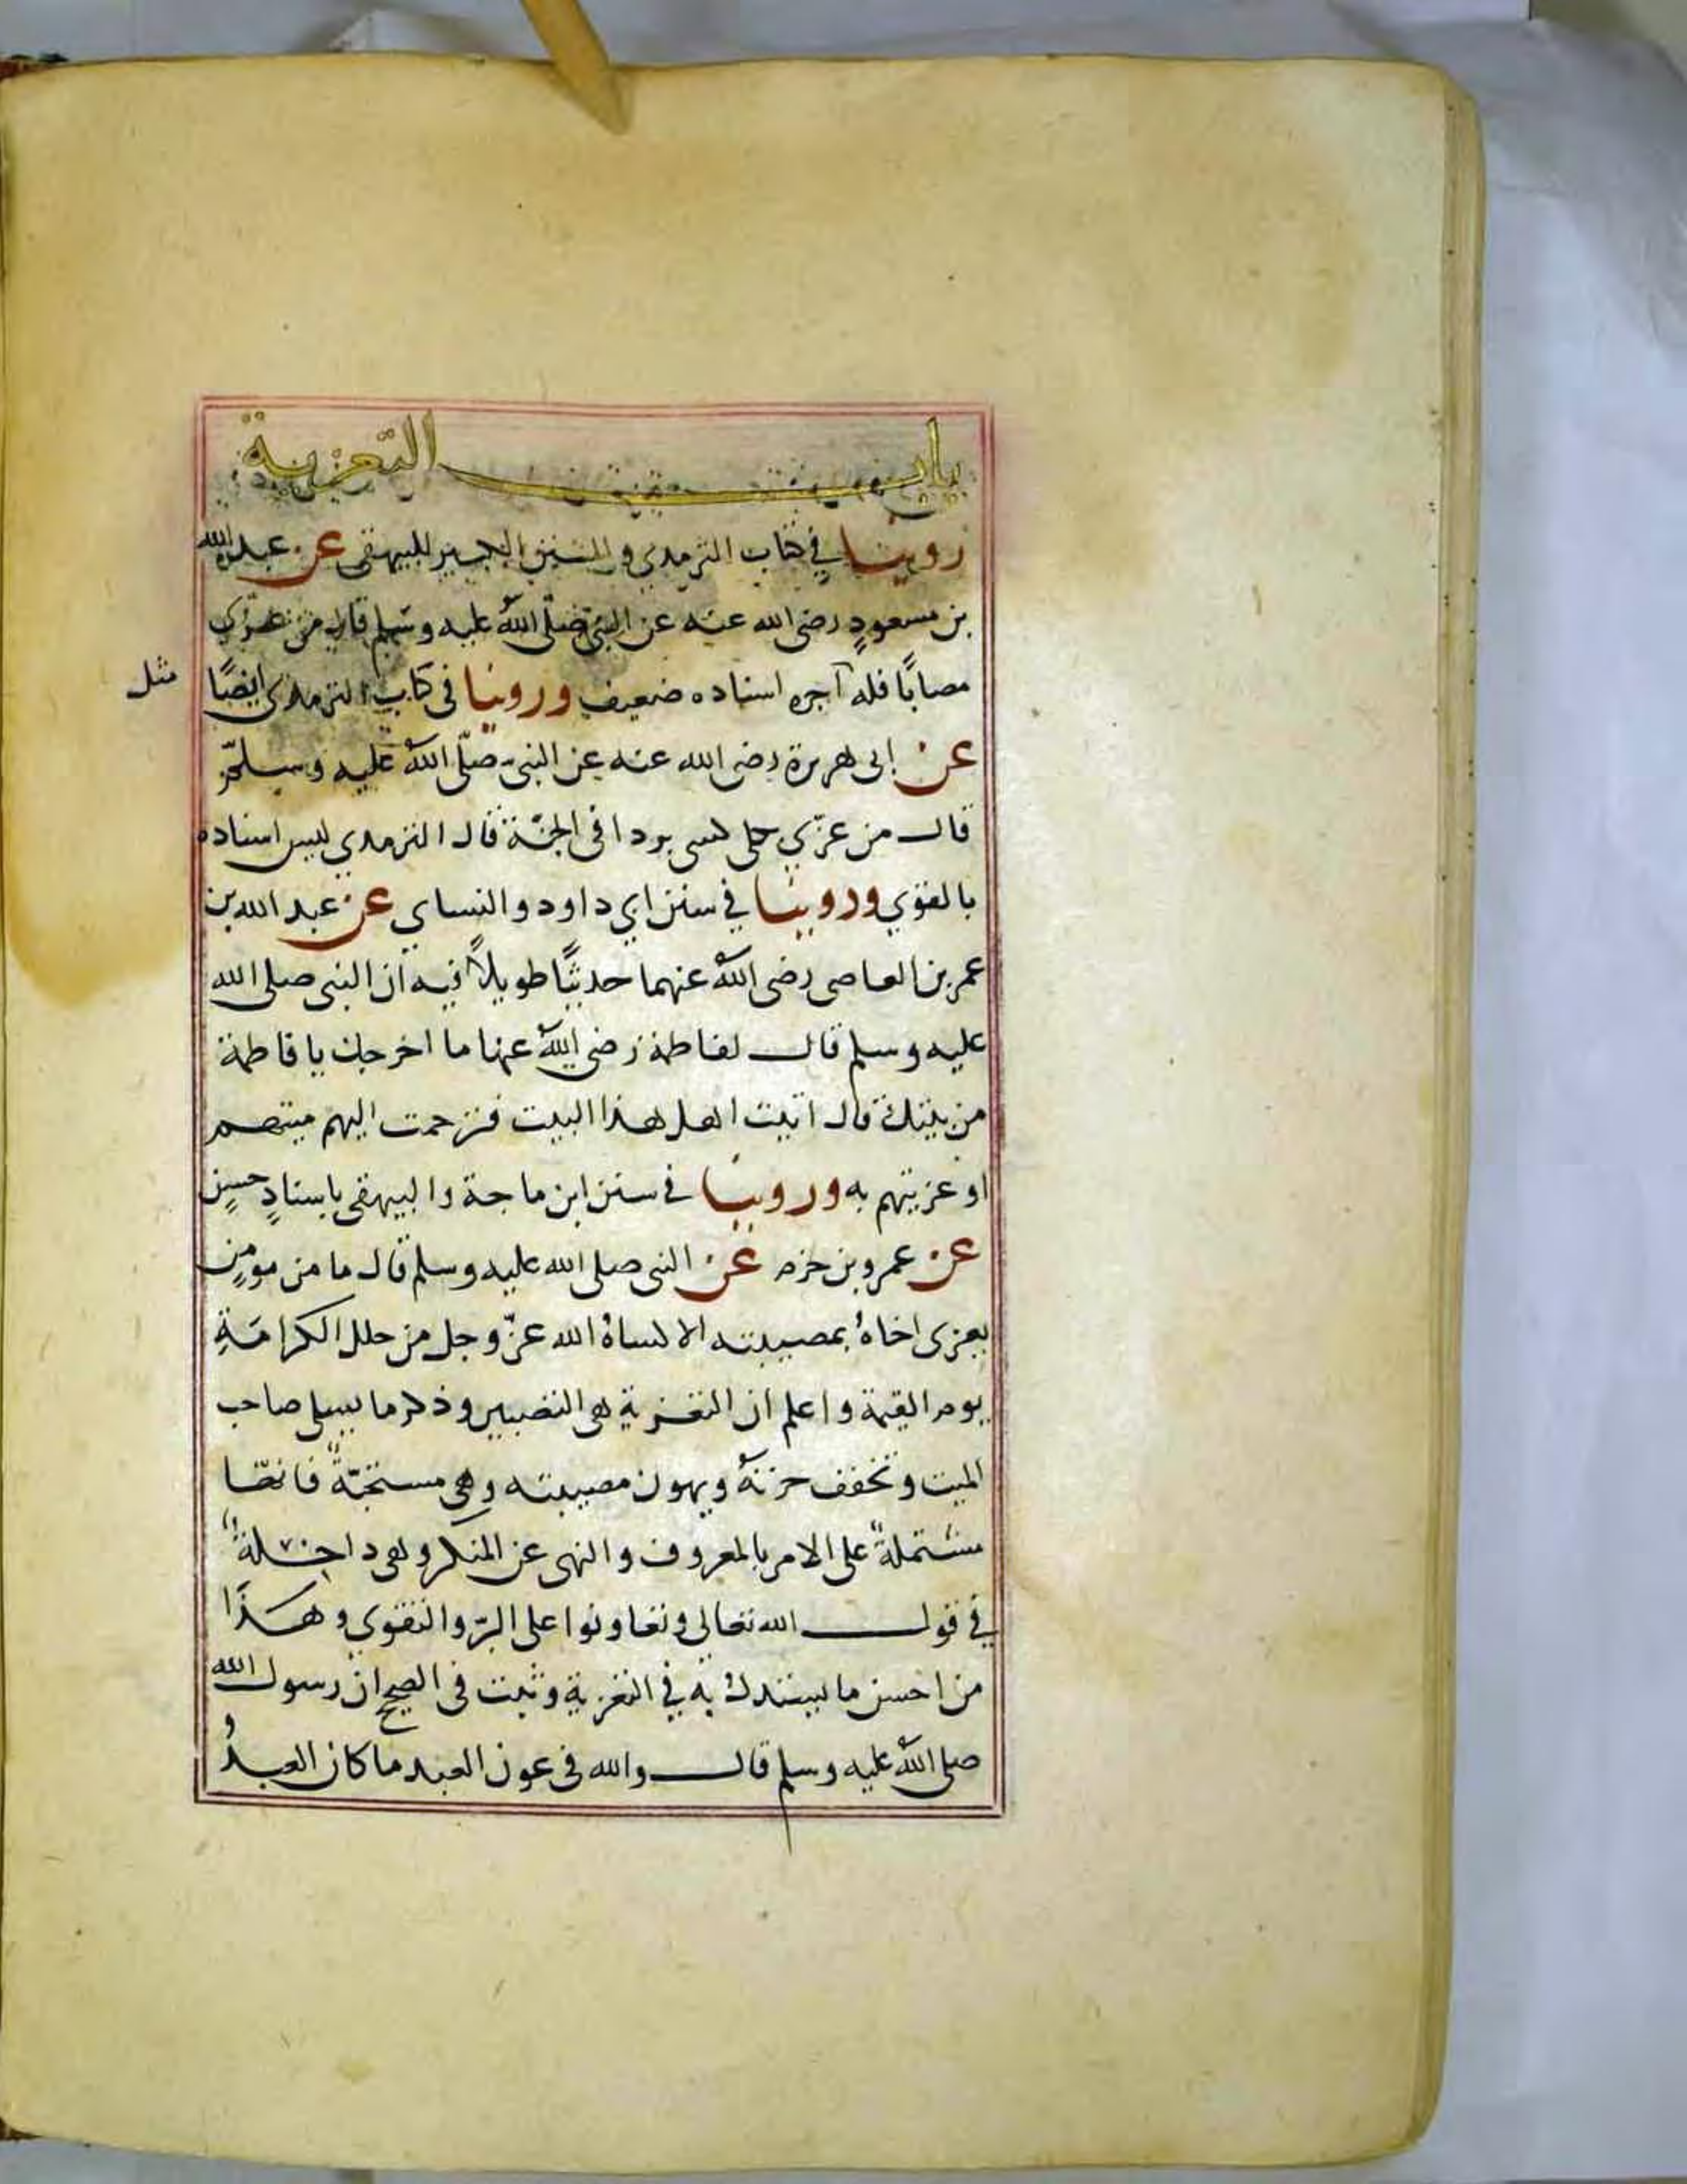 باب التعزية
روينا في كتاب الترمذي والسنن الكبير للبيهقى عن عبد الله
بن مسعودٍ رضى الله عنه عن النبى صلّى اللهُ عليه وسلم قال من عزّى
مصابًا فله آجره اسناده ضعيف وروينا فى كتاب الترمذى ايضًا
مثل
عن ابى هريرة رضى الله عنه عن النبى صلّى اللهُ عليه وسلم
قال من عزّي ثكلى كسى بردا فى الجنّة قال الترمذي ليس اسناده
بالقوّي وروينا في سنن ابي داود والنساي عن عبد الله بن
عمر بن العاصى رضى اللهُ عنهما حديثًا طويلاً فيه ان النبى صلى الله
عليه وسلم قال لفاطمة رضى اللهُ عنها ما اخرجك يا فاطمة
من بيتك قال اتيت اهل هذا البيت فترحمت اليهم ميتهم
او عزيتهم به وروينا فى سنن ابن ماجة والبيهقى باسنادٍ حسنٍ
عن عمرو بن حزم عن النبى صلى الله عليه وسلم قال ما من مومنٍ
يعزى اخاهُ بمصيبته الا كساهُ الله عزّ وجل من حلل الكرامَةِ
يوم القيمة واعلم ان التعزية هى التصبير وذكر ما يسلى صاحب
الميت وتخفف حزنهُ ويهون مصيبته وهى مستحبّةٌ فانها
مشتملةٌ على الامر بالمعروف والنهى عن المنكر وهى داخلةٌ
في قول الله تعالى وتعاونوا على البرّ والتقوى وهذا
من احسن ما يستدل به في التعزية وثبت فى الصحيح ان رسول الله
صلى اللهُ عليه وسلم قال والله فى عون العبد ما كان العبدُ